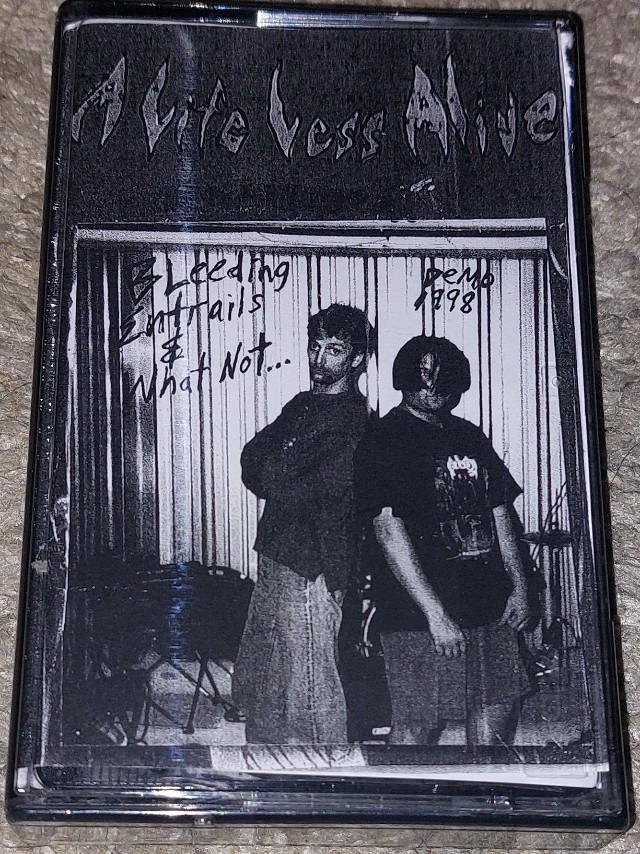 A Life Less Alive
Bleeding
Entrails
&
What Not...
Demo
1998